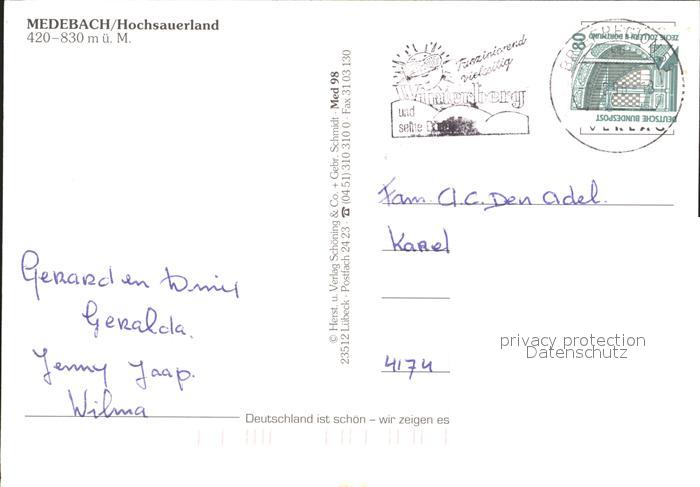 MEDEBACH/Hochsauerland
420–830 m ü. M.
Faszinierend
vielseitig
Winterberg
und
seine
80
ZECHE ZOLLERN II DORTMUND
DEUTSCHE BUNDESPOST
© Herst. u. Verlag Schöning & Co. + Gebr. Schmidt · Med 98
23512 Lübeck · Postfach 24 23 · ☎ (04 51) 310 310 0 · Fax 31 03 130
Fam. A.C. Den Adel.
Karel
4174
privacy protection
Datenschutz
Gerard en Winy
Geralda.
Jenny Jaap.
Wilma
Deutschland ist schön – wir zeigen es